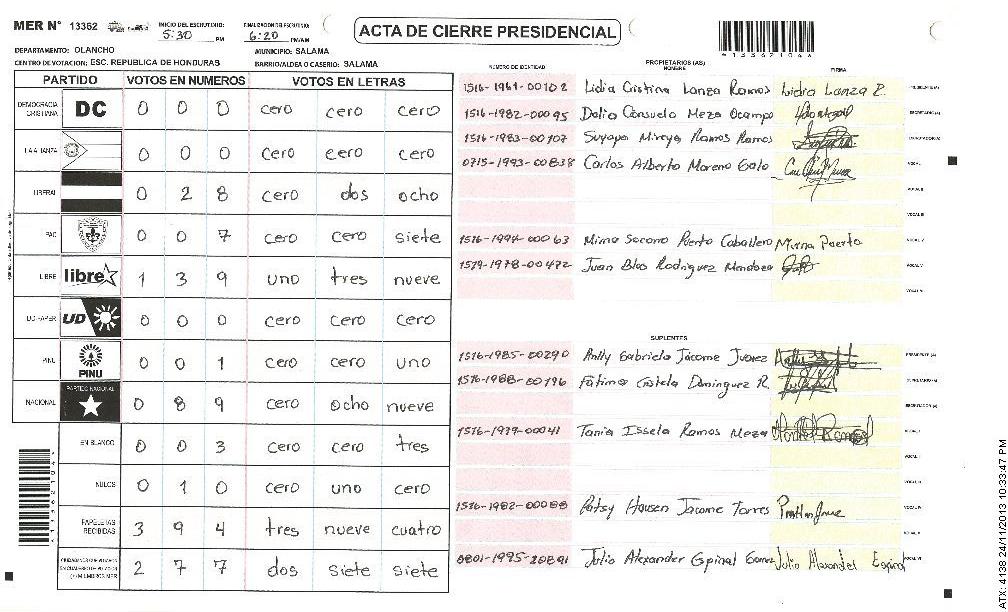 MER N° 13362 INICIO DEL ESCRUTINIO: 5:30 PM FINALIZACION DEL ESCRUTINIO: 6:20 PM/AM
ACTA DE CIERRE PRESIDENCIAL
DEPARTAMENTO: OLANCHO MUNICIPIO: SALAMA
CENTRO DE VOTACION: ESC. REPUBLICA DE HONDURAS BARRIO/ALDEA O CASERIO: SALAMA
PARTIDO VOTOS EN NUMEROS VOTOS EN LETRAS
DEMOCRACIA CRISTIANA DC 0 0 0 cero cero cero
LA ALIANZA 0 0 0 cero cero cero
LIBERAL 0 2 8 cero dos ocho
PAC 0 0 7 cero cero siete
LIBRE libre 1 3 9 uno tres nueve
UD-FAPER UD 0 0 0 cero cero cero
PINU PINU 0 0 1 cero cero uno
NACIONAL PARTIDO NACIONAL 0 8 9 cero ocho nueve
EN BLANCO 0 0 3 cero cero tres
NULOS 0 1 0 cero uno cero
PAPELETAS RECIBIDAS 3 9 4 tres nueve cuatro
2 7 7 dos siete siete
NUMERO DE IDENTIDAD PROPIETARIOS (AS) NOMBRE FIRMA
1516-1961-00102 Lidia Cristina Lanza Ramos Lidia Lanza R. PRESIDENTE (A)
1516-1982-00095 Dalia Consuelo Meza Ocampo SECRETARIO (A)
1516-1983-00107 Suyapa Mireya Ramos Ramos ESCRUTADOR (A)
0715-1993-00838 Carlos Alberto Moreno Galo VOCAL I
VOCAL II
VOCAL III
1516-1994-00063 Mirna Socorro Puerto Caballero Mirna Puerto VOCAL IV
1519-1978-00472 Juan Blas Rodriguez Mendoza VOCAL V
VOCAL VI
SUPLENTES
1516-1985-00290 Gabriela Jácome Juarez PRESIDENTE (A)
1516-1988-00196 Fátima Dominguez R. SECRETARIO (A)
ESCRUTADOR (A)
1516-1979-00041 Tania Issela Ramos Meza VOCAL I
VOCAL II
VOCAL III
1516-1982-00088 Patsy Hausen Jacome Torres VOCAL IV
VOCAL V
0801-1995-20891 Julio Alexander Espinal Gomez Julio Alexander Espinal VOCAL VI
4133621044
ATX: 4138 24/11/2013 10:33:47 PM